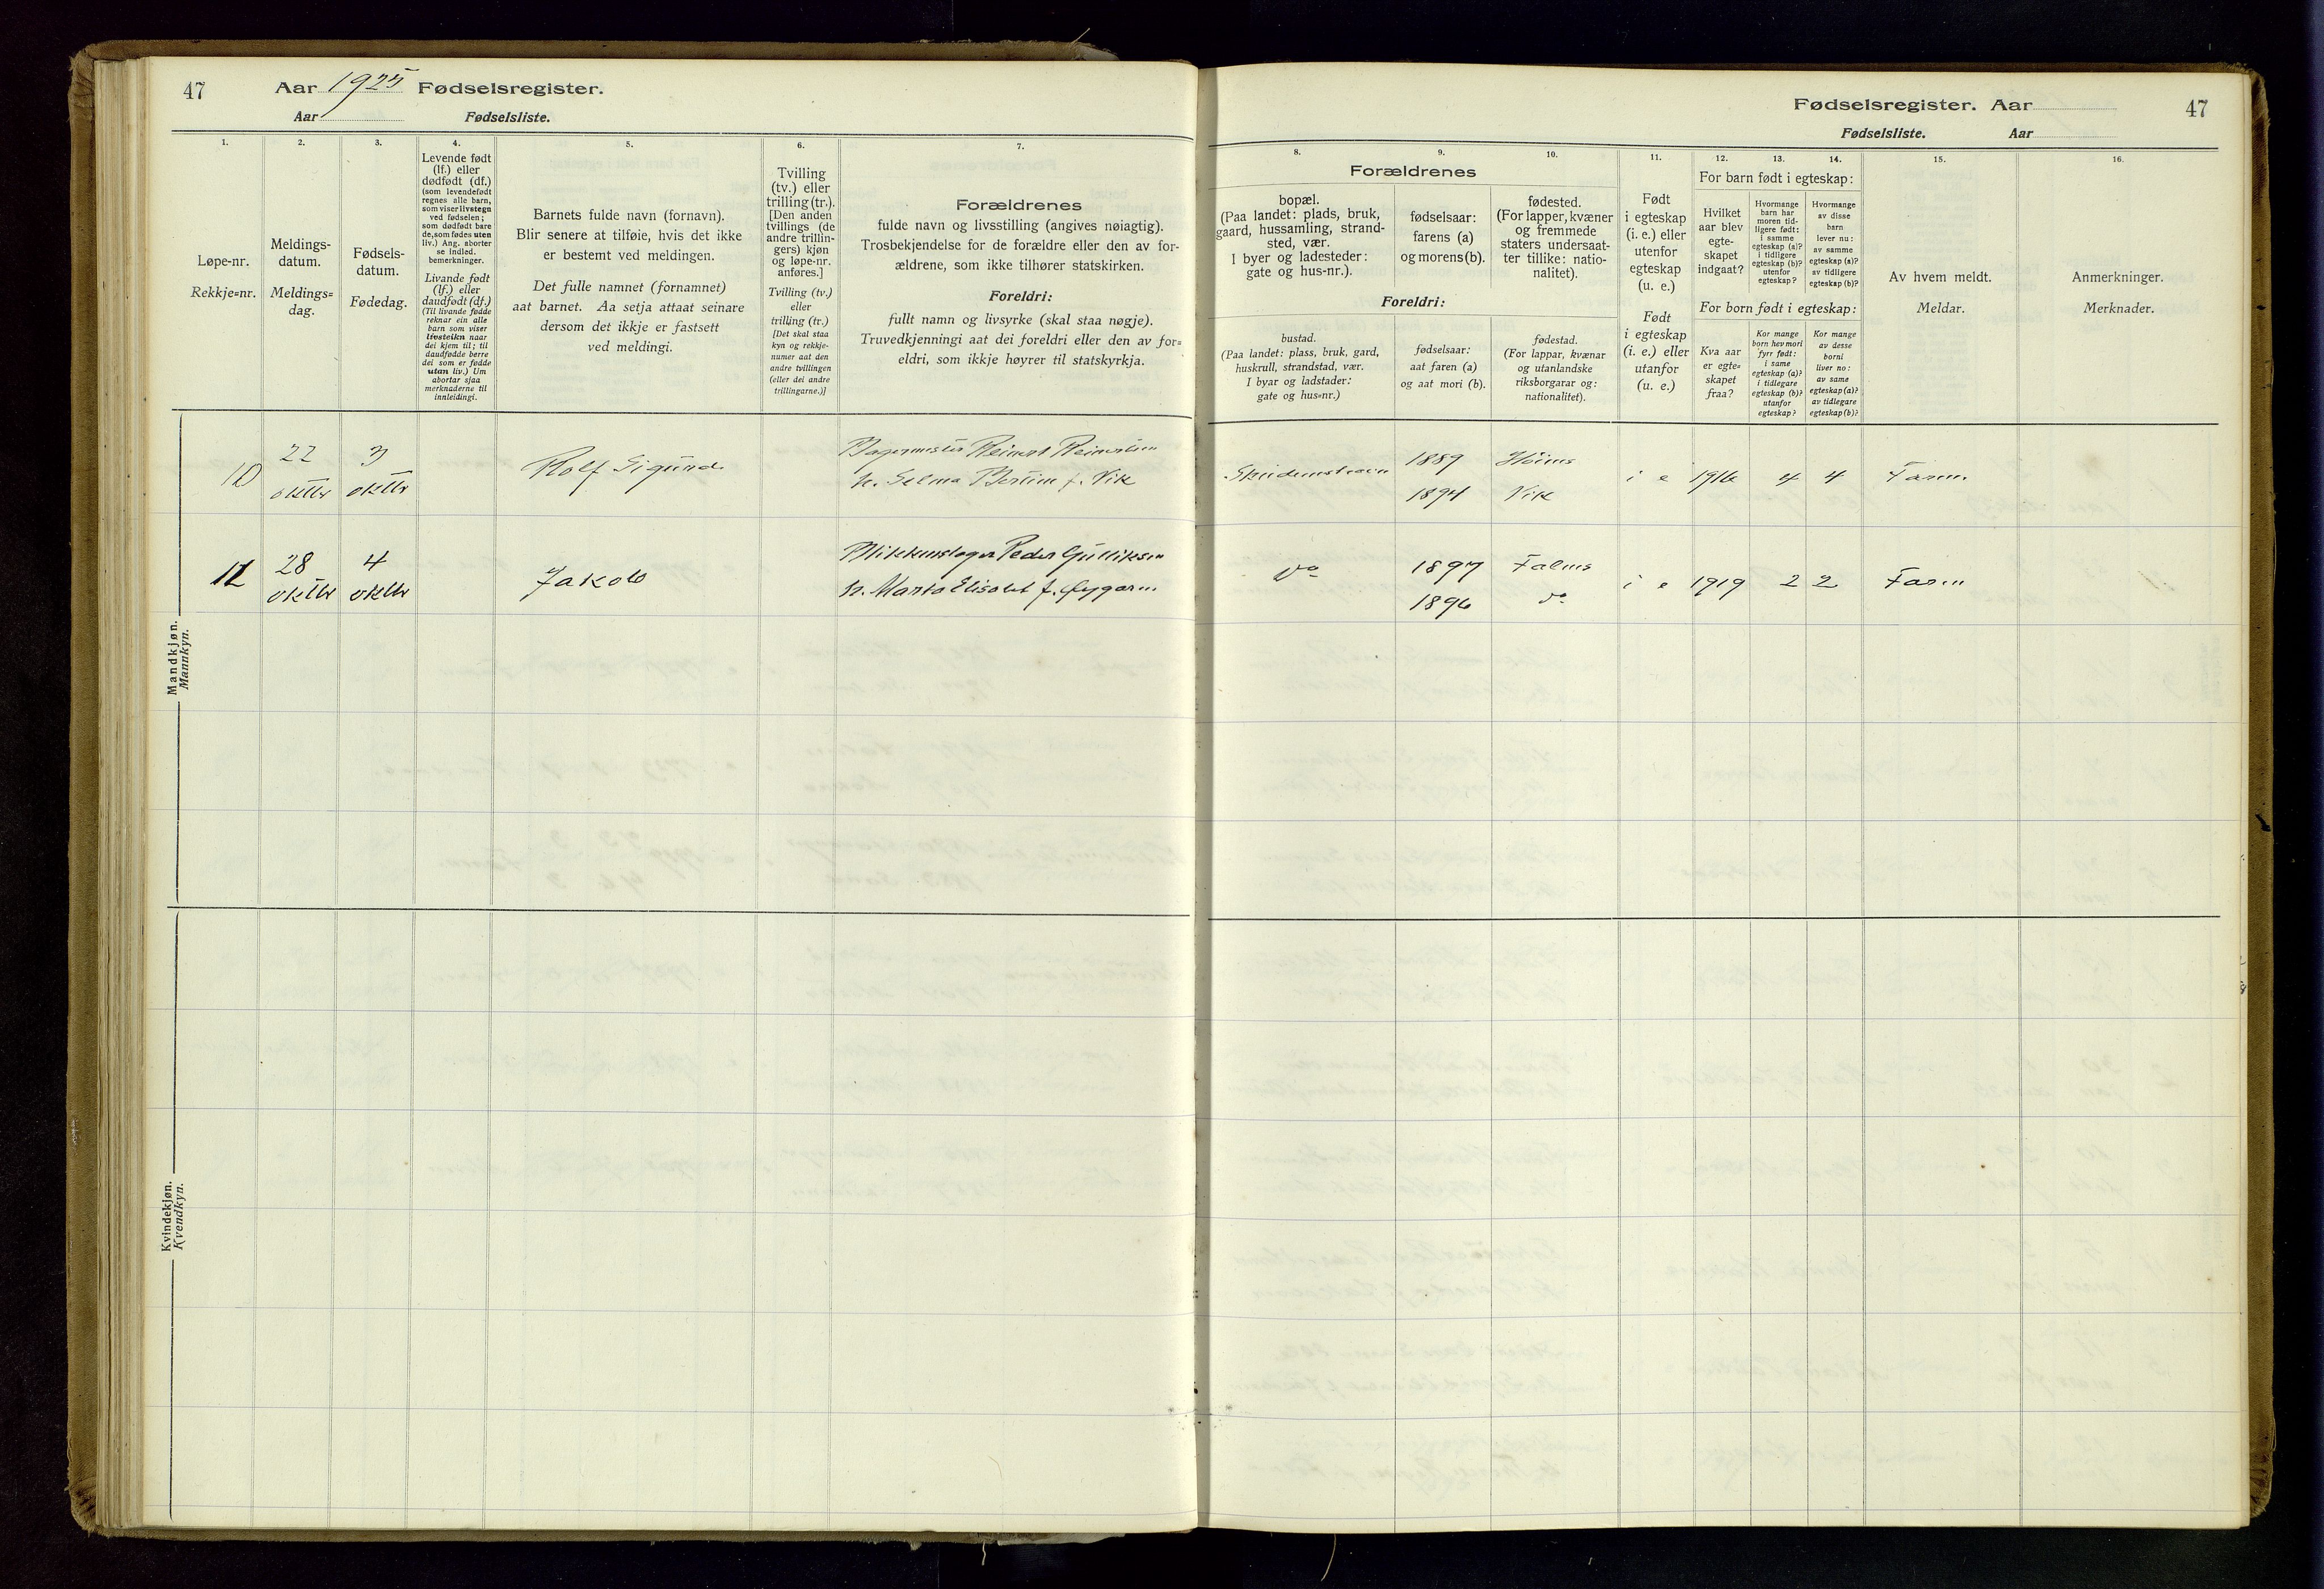 47
Aar 1925 Fødselsregister.
Aar Fødselsliste.
1.
2.
3.
4.
5.
6.
7.
Løpe-nr.
Rekkje=nr.
Meldings-
datum.
Meldings=
dag.
Fødsels-
datum.
Fødedag.
Levende født
(lf.) eller
dødfødt (df.)
(som levendefødt
regnes alle barn,
som viser livstegn
ved fødselen;
som dødfødt bare
de, som fødes uten
liv.) Ang. aborter
se indled.
bemerkninger.
Livande født
(lf.) eller
daudfødt (df.)
(Til livande fødde
reknar ein alle
barn som viser
livsteikn naar
dei kjem til; til
daudfødde berre
dei som er fødde
utan liv.) Um
abortar sjaa
merknaderne til
innleidingi.
Barnets fulde navn (fornavn).
Blir senere at tilføie, hvis det ikke
er bestemt ved meldingen.
Det fulle namnet (fornamnet)
aat barnet. Aa setja attaat seinare
dersom det ikkje er fastsett
ved meldingi.
Tvilling
(tv.) eller
trilling (tr.).
[Den anden
tvillings (de
andre trillin-
gers) kjøn
og løpe-nr.
anføres.]
Tvilling (tv.)
eller
trilling (tr.)
[Det skal staa
kyn og rekkje-
numer aat den
andre tvillingen
(eller dei andre
trillingarne.)]
Forældrenes
fulde navn og livsstilling (angives nøiagtig).
Trosbekjendelse for de forældre eller den av for-
ældrene, som ikke tilhører statskirken.
Foreldri:
fullt namn og livsyrke (skal staa nøgje).
Truvedkjenningi aat dei foreldri eller den av for=
eldri, som ikkje høyrer til statskyrkja.
Mandkjøn.
Mannkyn.
10
22
oktbr
3
oktbr
Rolf Sigurd
Bagermester Reinert Reinertsen
h. Selma Bertine f. Vik
11
28
oktbr
4
oktbr
Jakob
Blikkenslager Peder Gulliksen
h. Marta Elisabet f. Øygarn
Kvindekjøn.
Kvendkyn.
Fødselsregister. Aar
47
Fødselsliste. Aar
8.
9.
10.
11.
12.
13.
14.
15.
16.
Forældrenes
bopæl.
(Paa landet: plads, bruk,
gaard, hussamling, strand-
sted, vær.
I byer og ladesteder:
gate og hus-nr.).
fødselsaar:
farens (a)
og morens (b).
fødested.
(For lapper, kvæner
og fremmede
staters undersaat-
ter tillike: natio-
nalitet).
Foreldri:
bustad.
(Paa landet: plass, bruk, gard,
huskrull, strandstad, vær.
I byar og ladstader:
gate og hus=nr.)
fødselsaar:
aat faren (a)
og aat mori (b).
fødestad.
(For lappar, kvænar
og utanlandske
riksborgarar og:
nationalitet).
Født
i egteskap
(i. e.) eller
utenfor
egteskap
(u. e.)
Født
i egteskap
(i. e.) eller
utanfor
(u. e.)
For barn født i egteskap:
Hvilket
aar blev
egte-
skapet
indgaat?
Hvormange
barn har
moren tid-
ligere født:
i samme
egteskap (a)?
i tidligere
egteskap (b)?
utenfor
egteskap?
Hvormange
av disse
barn
lever nu:
av samme
egteskap (a)?
av tidligere
egteskap (b)?
For born født i egteskap:
Kva aar
er egte=
skapet
fraa?
Kor mange
born hev mori
fyrr født:
i same
egteskap (a)?
i tidlegare
egteskap (b)?
utanfor
egteskap?
Kor mange
av desse
borni
liver no:
av same
egteskap (a)?
av tidlegare
egteskap (b)?
Av hvem meldt.
Meldar.
Anmerkninger.
Merknader.
1889
1894
Vik
i e 1916 4 4
do
1897
1896
do
i e 1919 2 2